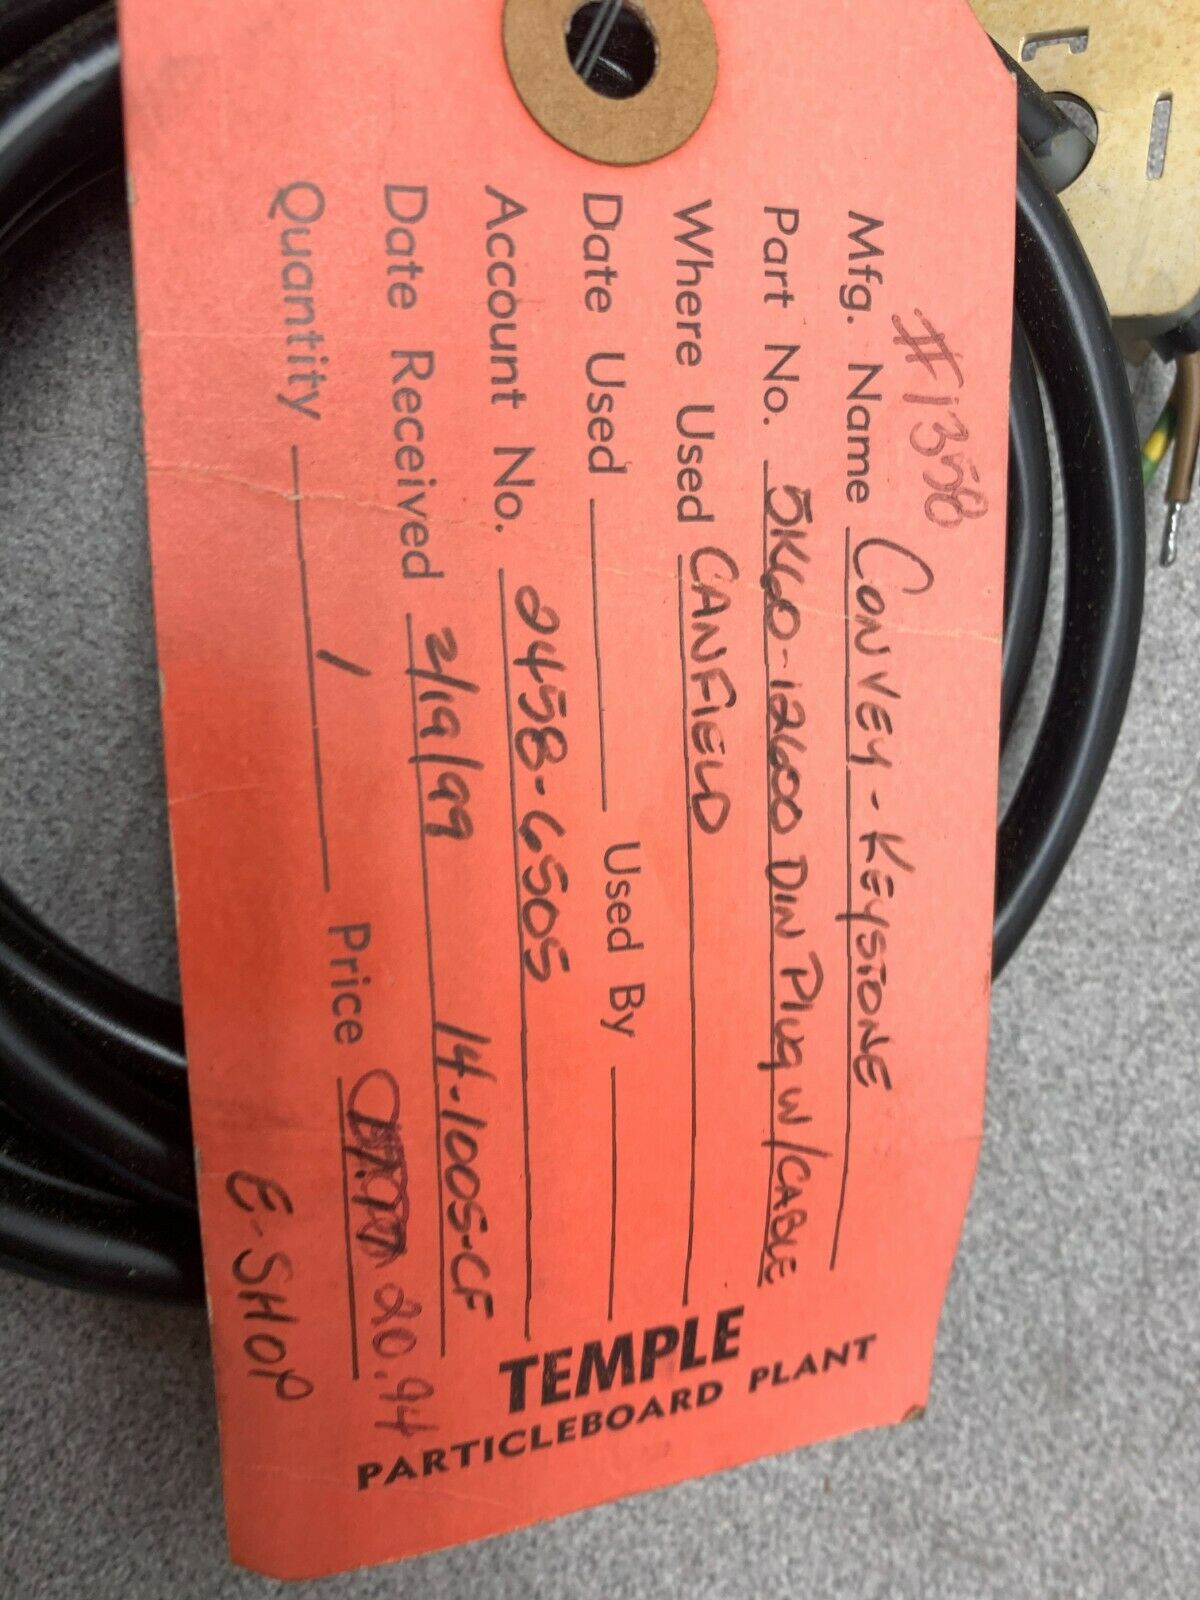 #1358
Mfg. Name CONVEY-KEYSTONE
Part No. 5K60-12600 DIN PLUG W/CABLE
Where Used CANFIELD
Date Used Used By
Account No. 2458-6505
Date Received 2/19/99 14-1005-CF
Quantity 1 Price 20.94
E-SHOP
TEMPLE
PARTICLEBOARD PLANT